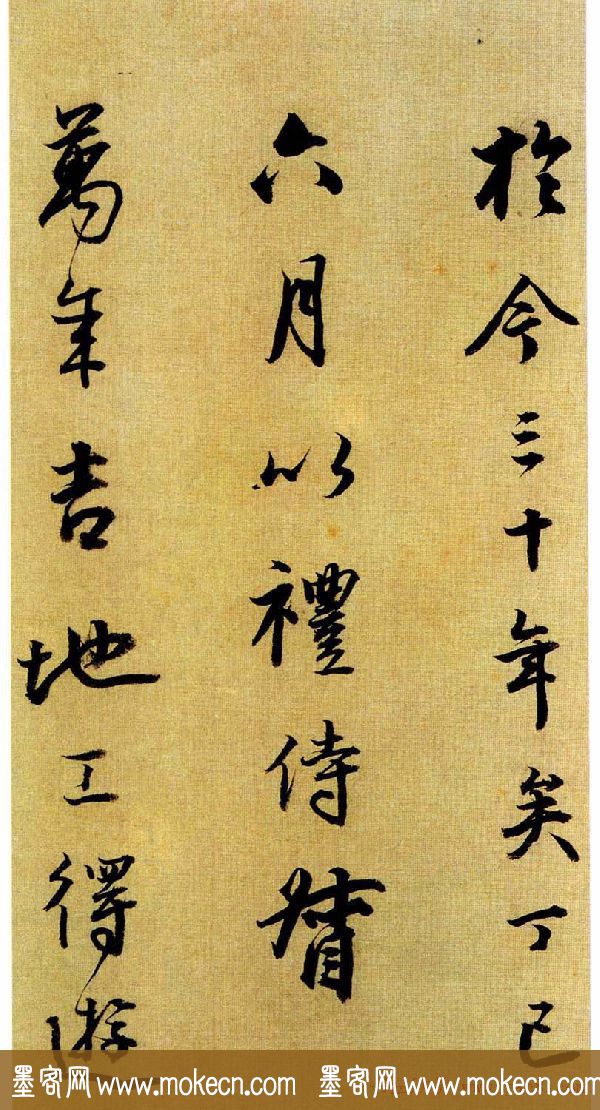 於今三十年矣丁巳
六月以禮侍督
萬年吉地工得遊
墨客网 www.mokecn.com 墨客网 www.mokecn.com